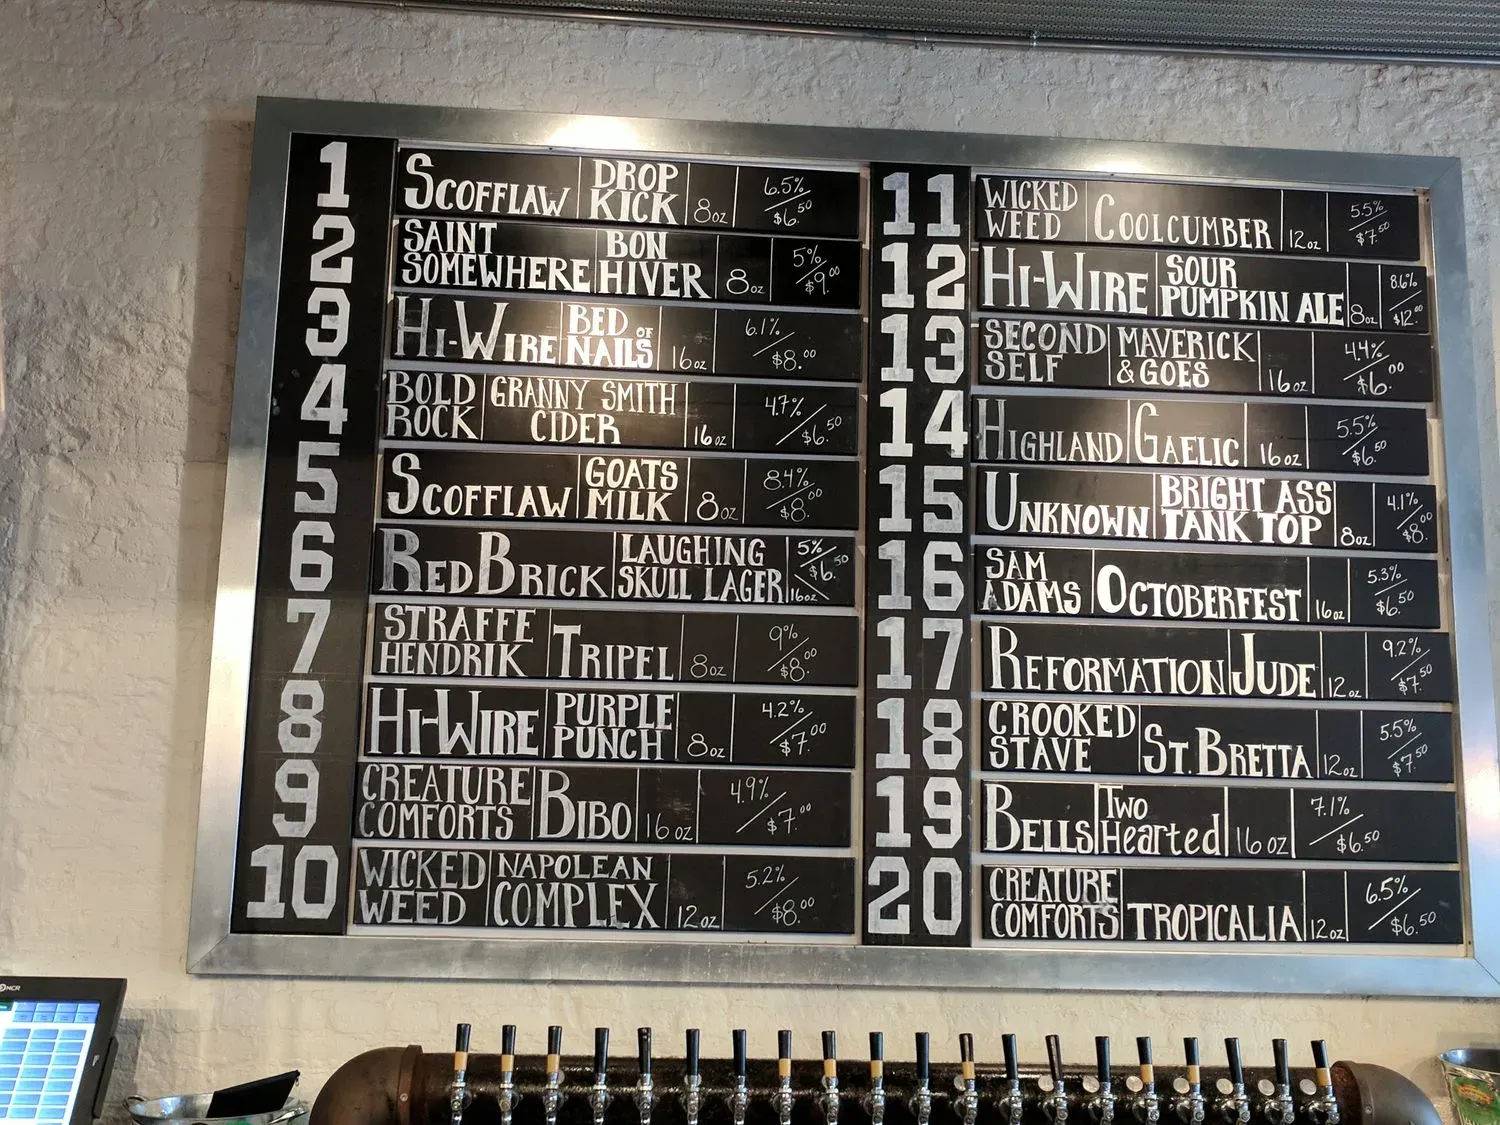 1 SCOFFLAW DROP KICK 8oz 6.5% $6.50
2 SAINT SOMEWHERE BON HIVER 8oz 5% $9.00
3 HI-WIRE BED OF NAILS 16oz 6.1% $8.00
4 BOLD ROCK GRANNY SMITH CIDER 16oz 4.7% $6.50
5 SCOFFLAW GOATS MILK 8oz 8.4% $8.00
6 RED BRICK LAUGHING SKULL LAGER 16oz 5% $6.50
7 STRAFFE HENDRIK TRIPEL 8oz 9% $8.00
8 HI-WIRE PURPLE PUNCH 8oz 4.2% $7.00
9 CREATURE COMFORTS BIBO 16oz 4.9% $7.00
10 WICKED WEED NAPOLEAN COMPLEX 12oz 5.2% $8.00
11 WICKED WEED COOLCUMBER 12oz 5.5% $7.50
12 HI-WIRE SOUR PUMPKIN ALE 8oz 8.6% $12.00
13 SECOND SELF MAVERICK & GOES 16oz 4.4% $6.00
14 HIGHLAND GAELIC 16oz 5.5% $6.50
15 UNKNOWN BRIGHT ASS TANK TOP 8oz 4.1% $8.00
16 SAM ADAMS OCTOBERFEST 16oz 5.3% $6.50
17 REFORMATION JUDE 12oz 9.2% $7.50
18 CROOKED STAVE ST. BRETTA 12oz 5.5% $7.50
19 BELLS Two Hearted 16oz 7.1% $6.50
20 CREATURE COMFORTS TROPICALIA 12oz 6.5% $6.50
NCR